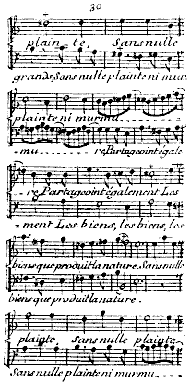 30
plain te. Sans nulle
grande Sans nulle plainte ni mur
plainte ni murmu
mu re Partageoint égale
re Partageoint également Les
ment Les biens, les biens, les
biens que produit la nature. Sans null
biens que produit la nature.
plainte, sans nulle plainte
Sans nulle plainte ni murmu